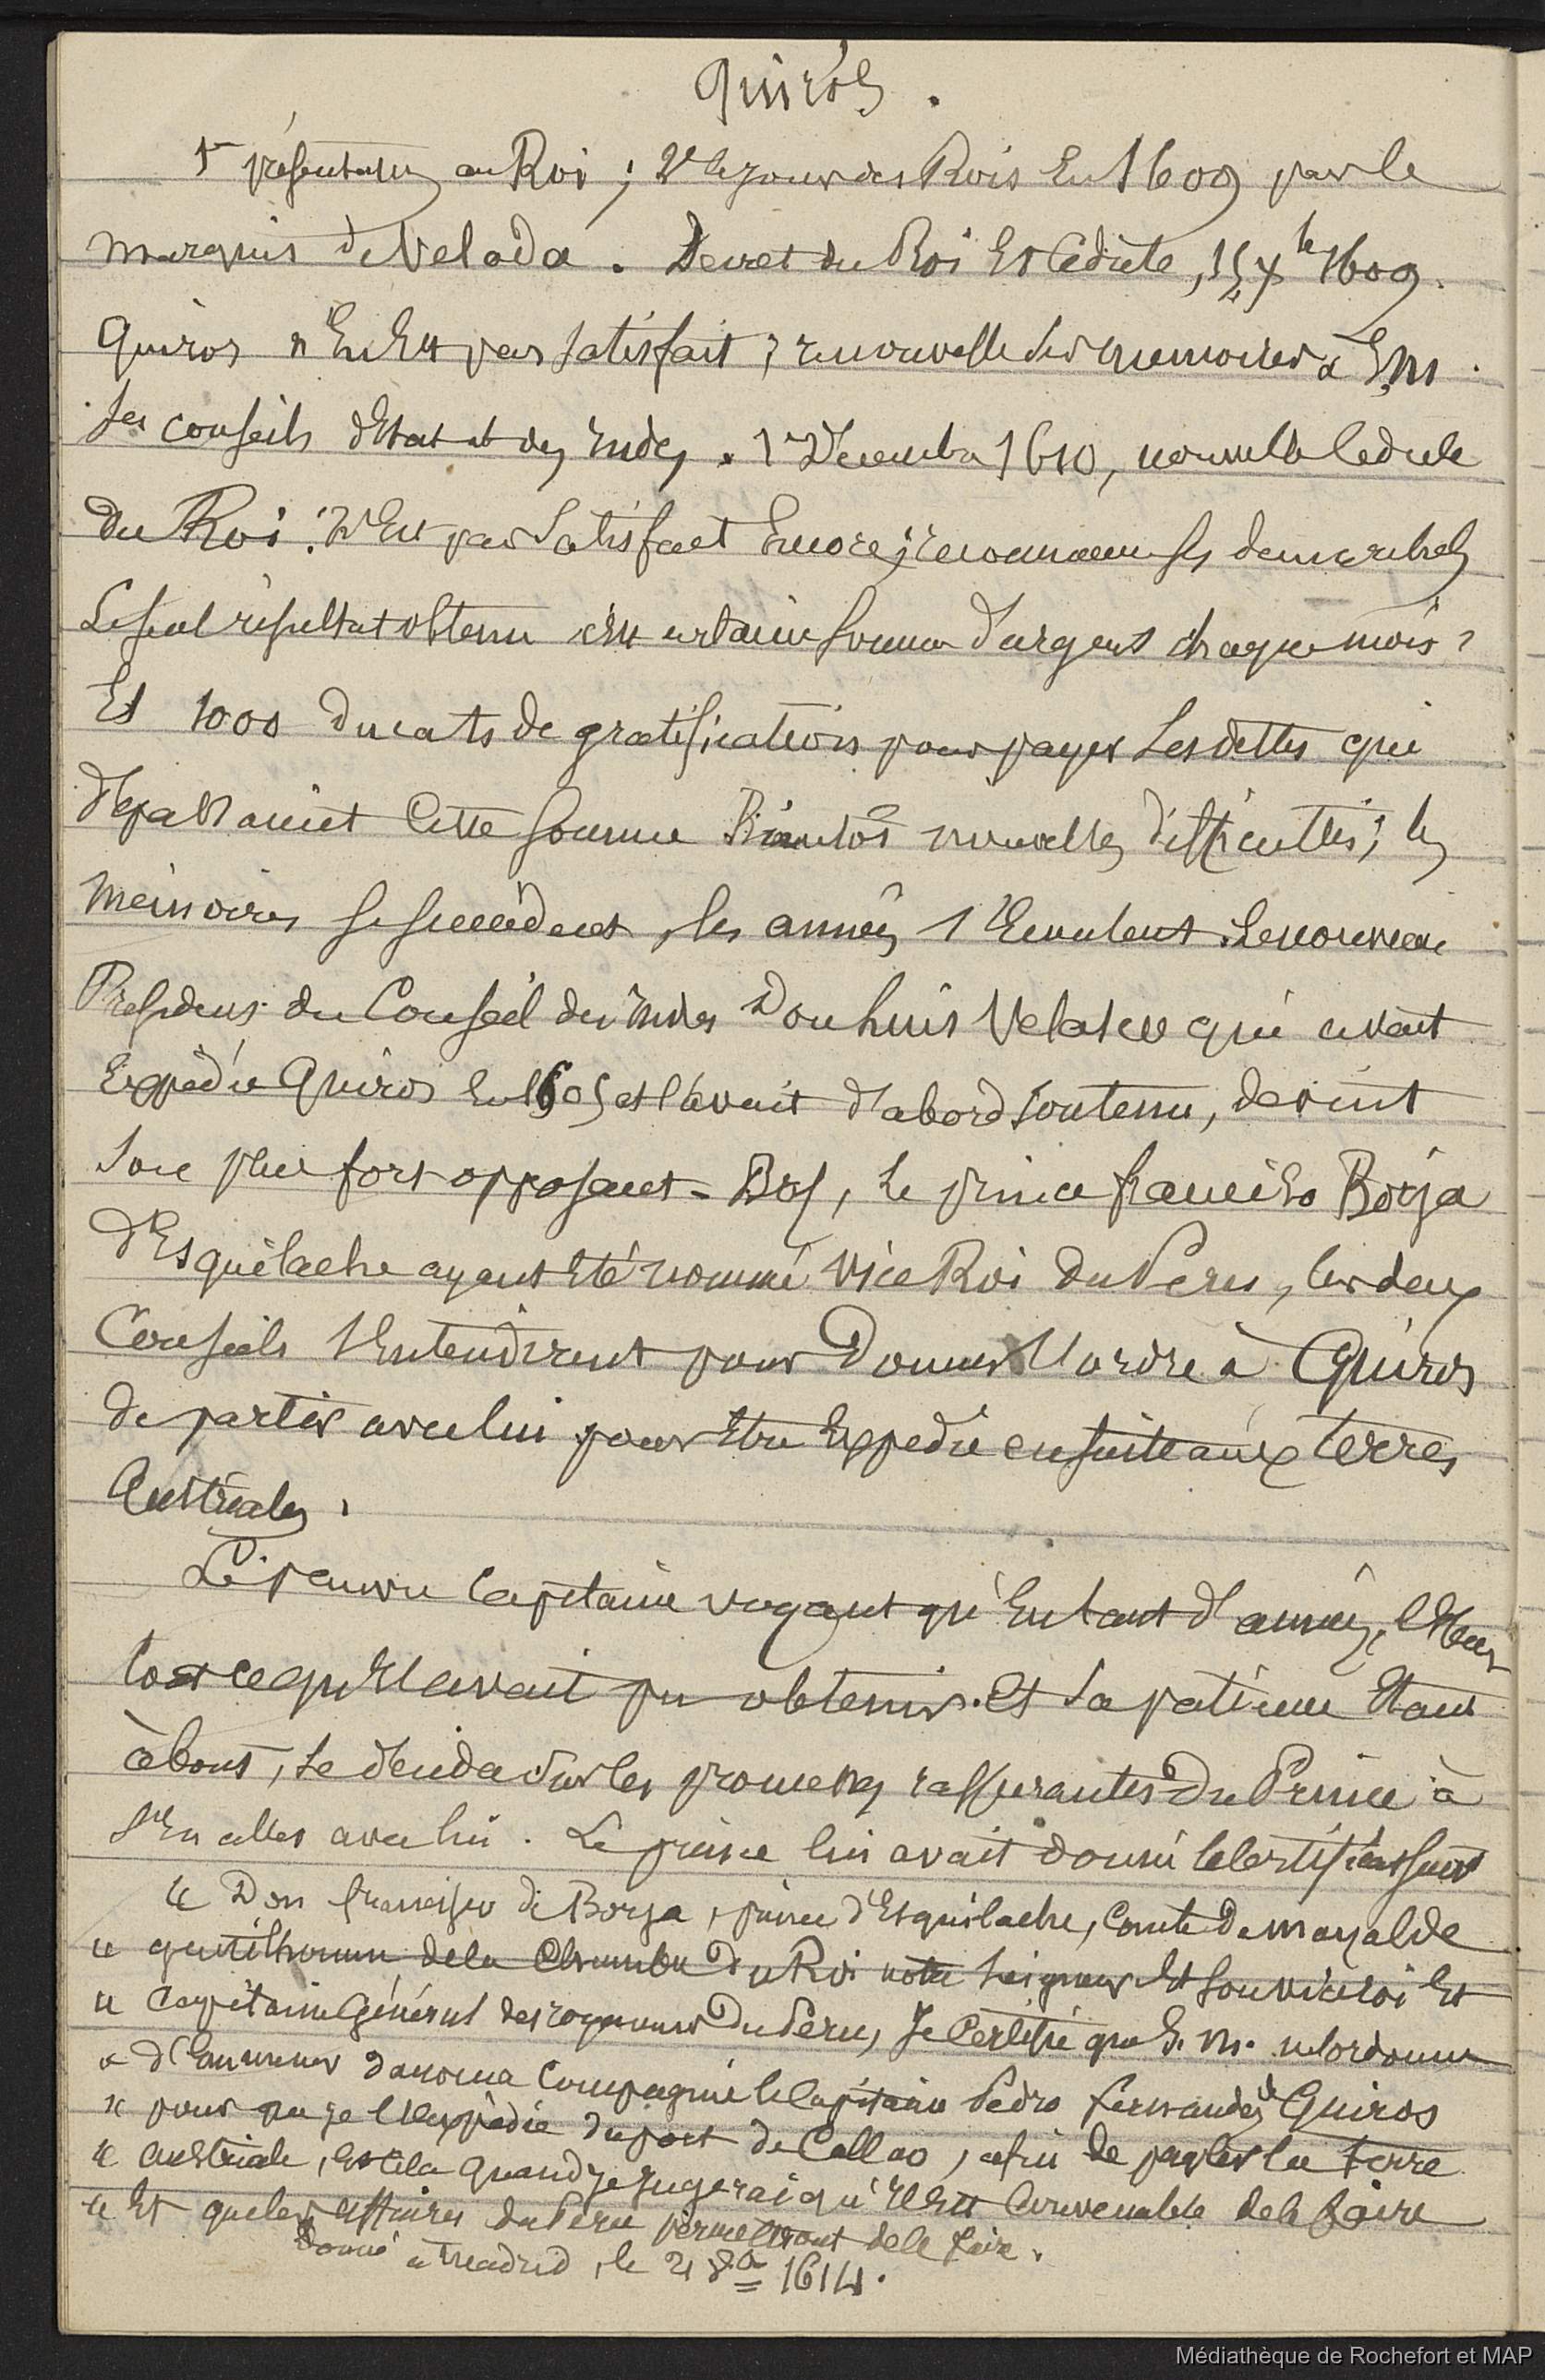 Quirós.
1re présentation au Roi ; 2e le jour des Rois En 1609 par le
marquis de Velada. Decret du Roi Et Cédule, 15 Xbre 1609.
Quiros n'En Est pas satisfait ; renouvelle ses memoires à S. M.
Ses conseils d'Etat et des Indes. 1er Décembre 1610, nouvelle cedule
du Roi. N'Est pas Satisfait Encore ; recommence ses demarches
Le seul résultat obtenu c'Est certaine somme d'argent chaque mois ;
Et 1000 ducats de gratification pour payer Les dettes qui
dépassaient Cette somme Bientôt nouvelles difficultés ; les
memoires se succèdent, les années s'Ecoulent. Le nouveau
President du Conseil des Indes Don Luis Velasco qui avait
Expédié Quiros En 1605 et l'avait d'abord soutenu, devint
son plus fort opposant. Bref, Le prince francisco Borja
d'Esquilache ayant Eté nommé Vice Roi du Perou, les deux
Conseils s'Entendirent pour Donner l'ordre à Quiros
de partir avec lui pour Etre Expédié ensuite aux terres
Australes.
Le pauvre Capitaine voyant qu'En tant d'années, c'Etait
tout ce qu'Il avait pu obtenir. Et sa patience Etant
à bout, se décida sur les promesses rassurantes du Prince à
s'En aller avec lui. Le prince lui avait donné le certificat suivt
« Don Francisco de Borja, prince d'Esquilache, Comte de Mayalde
« gentilhomme de la Chambre du Roi notre Seigneur Et son vice roi Et
« Capitaine Général des royaumes du Pérou, Je Certifie que S. M. m'ordonne
« d'Emmener dans ma Compagnie le Capitaine Pedro Fernandez de Quiros
« pour que je l'Expédie du port de Callao, afin de la terre
« Australe, Et cela quand je jugerai qu'Il Est Convenable de le faire
« Et que les affaires du Perou permettront de le faire.
Donné à Madrid, le 21 8bre 1614.
Médiathèque de Rochefort et MAP